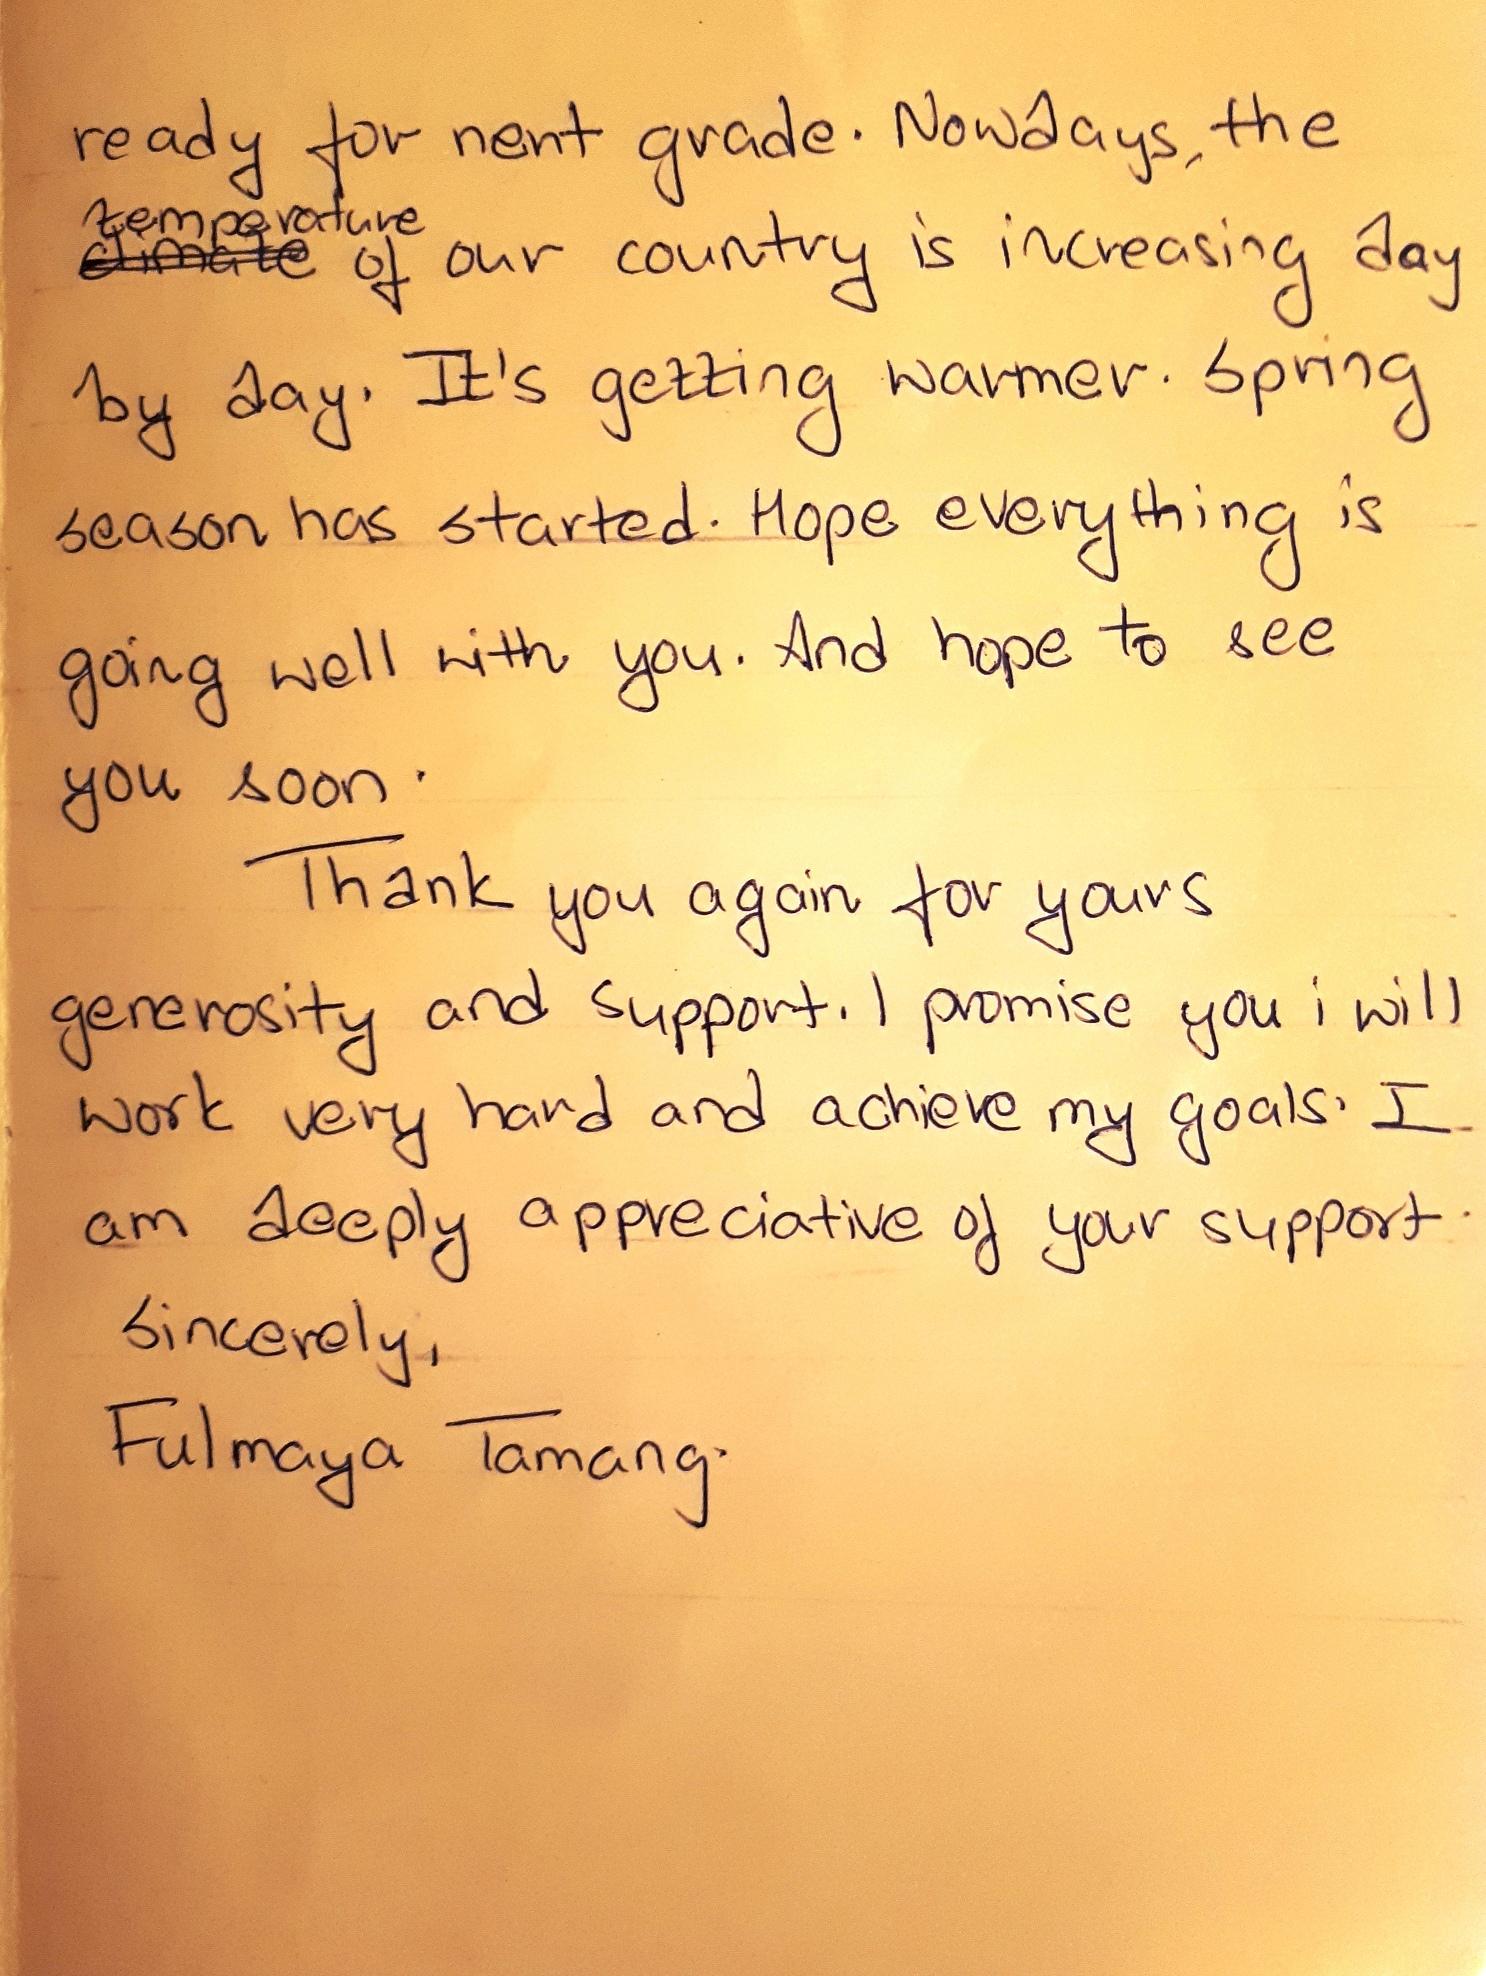 ready for nent grade. Nowdays, the
temperature
climate of our country is increasing day
by day. It's getting warmer. Spring
season has started. Hope everything is
going well with you. And hope to see
you soon.
Thank you again for yours
generosity and support. I promise you i will
work very hard and achieve my goals. I
am deeply appreciative of your support.
Sincerely,
Fulmaya Tamang.